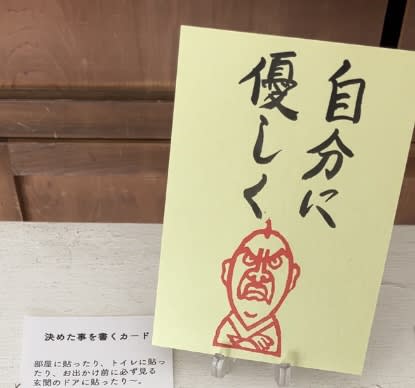 自分に
優しく
決めた事を書くカード
部屋に貼ったり、トイレに貼っ
たり、お出かけ前に必ず見る
玄関のドアに貼ったり〜。